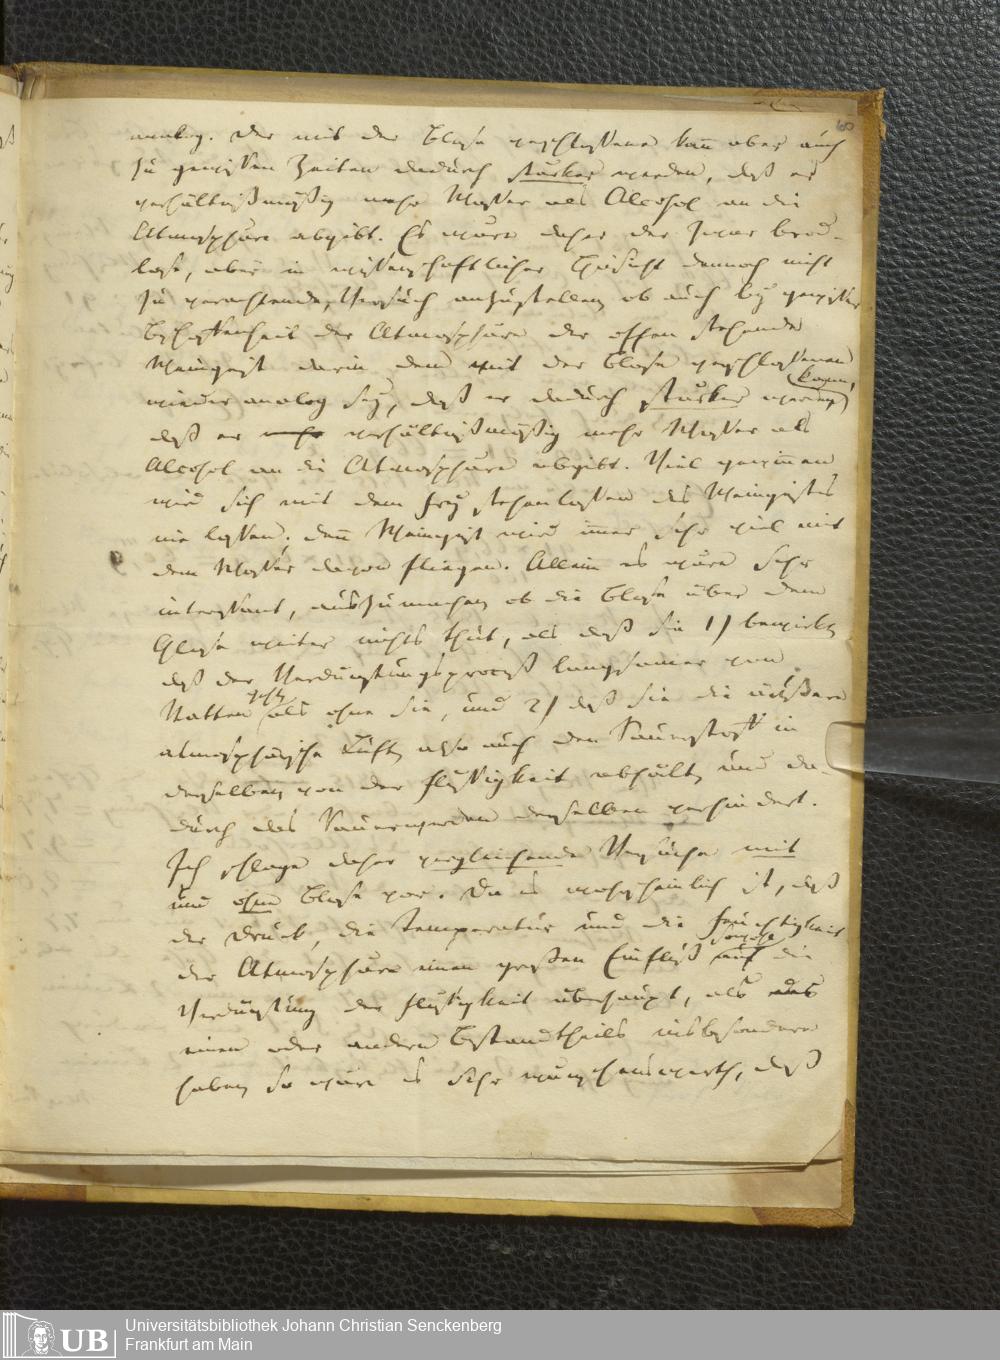 60
analog. Der mit der Blase verschlossene kan̄ aber auch
zu gewissen Zeiten dadurch stärker werden, daß er
verhältnißmäßig mehr Wasser als Alcohol an die
Atmosphäre abgibt. Es wäre daher der zwar brod-
lose, aber in wissenschaftlicher Hinsicht dennoch nicht
zu verachtende, Versuch anzustellen, ob auch bey gewisser
Beschaffenheit der Atmosphäre der offen stehende
Weingeist darin dem mit der Blase verschlossenen
wieder analog sey, daß er dadurch stärker werden kön̄e,
daß er mehr verhältnißmäßig mehr Wasser als
Alcohol an die Atmosphäre abgibt. Viel gewin̄en
wird sich mit dem frey stehenlassen des Weingeistes
nie lassen. den̄ Weingeist wird im̄er sehr viel mit
dem Wasser davon fliegen. Allein es wäre sehr
interessant, auszumachen, ob die Blase über dem
Glase weiter nichts thut, als daß sie 1) bewirkt,
daß der Verdunstungsproceß langsamer von
statten geht als ohne sie, und 2) daß sie die äußere
atmosphärische Luft, also auch den Sauerstoff in
derselben, von der Flüssigkeit abhält, und da-
durch das Sauerwerden derselben verhindert.
Ich schlage daher vergleichende Versuche mit
und ohne Blase vor. Da es wahrscheinlich ist, daß
der Druck, die Temperatur und die Feuchtigkeit
der Atmosphäre einen großen Einfluß sowohl auf die
Verdunstung der Flüssigkeit überhaupt, als des
einen oder andern Bestandtheils insbesondere
haben, so wäre es sehr wünschenswerth, daß
Universitätsbibliothek Johann Christian Senckenberg
Frankfurt am Main
UB